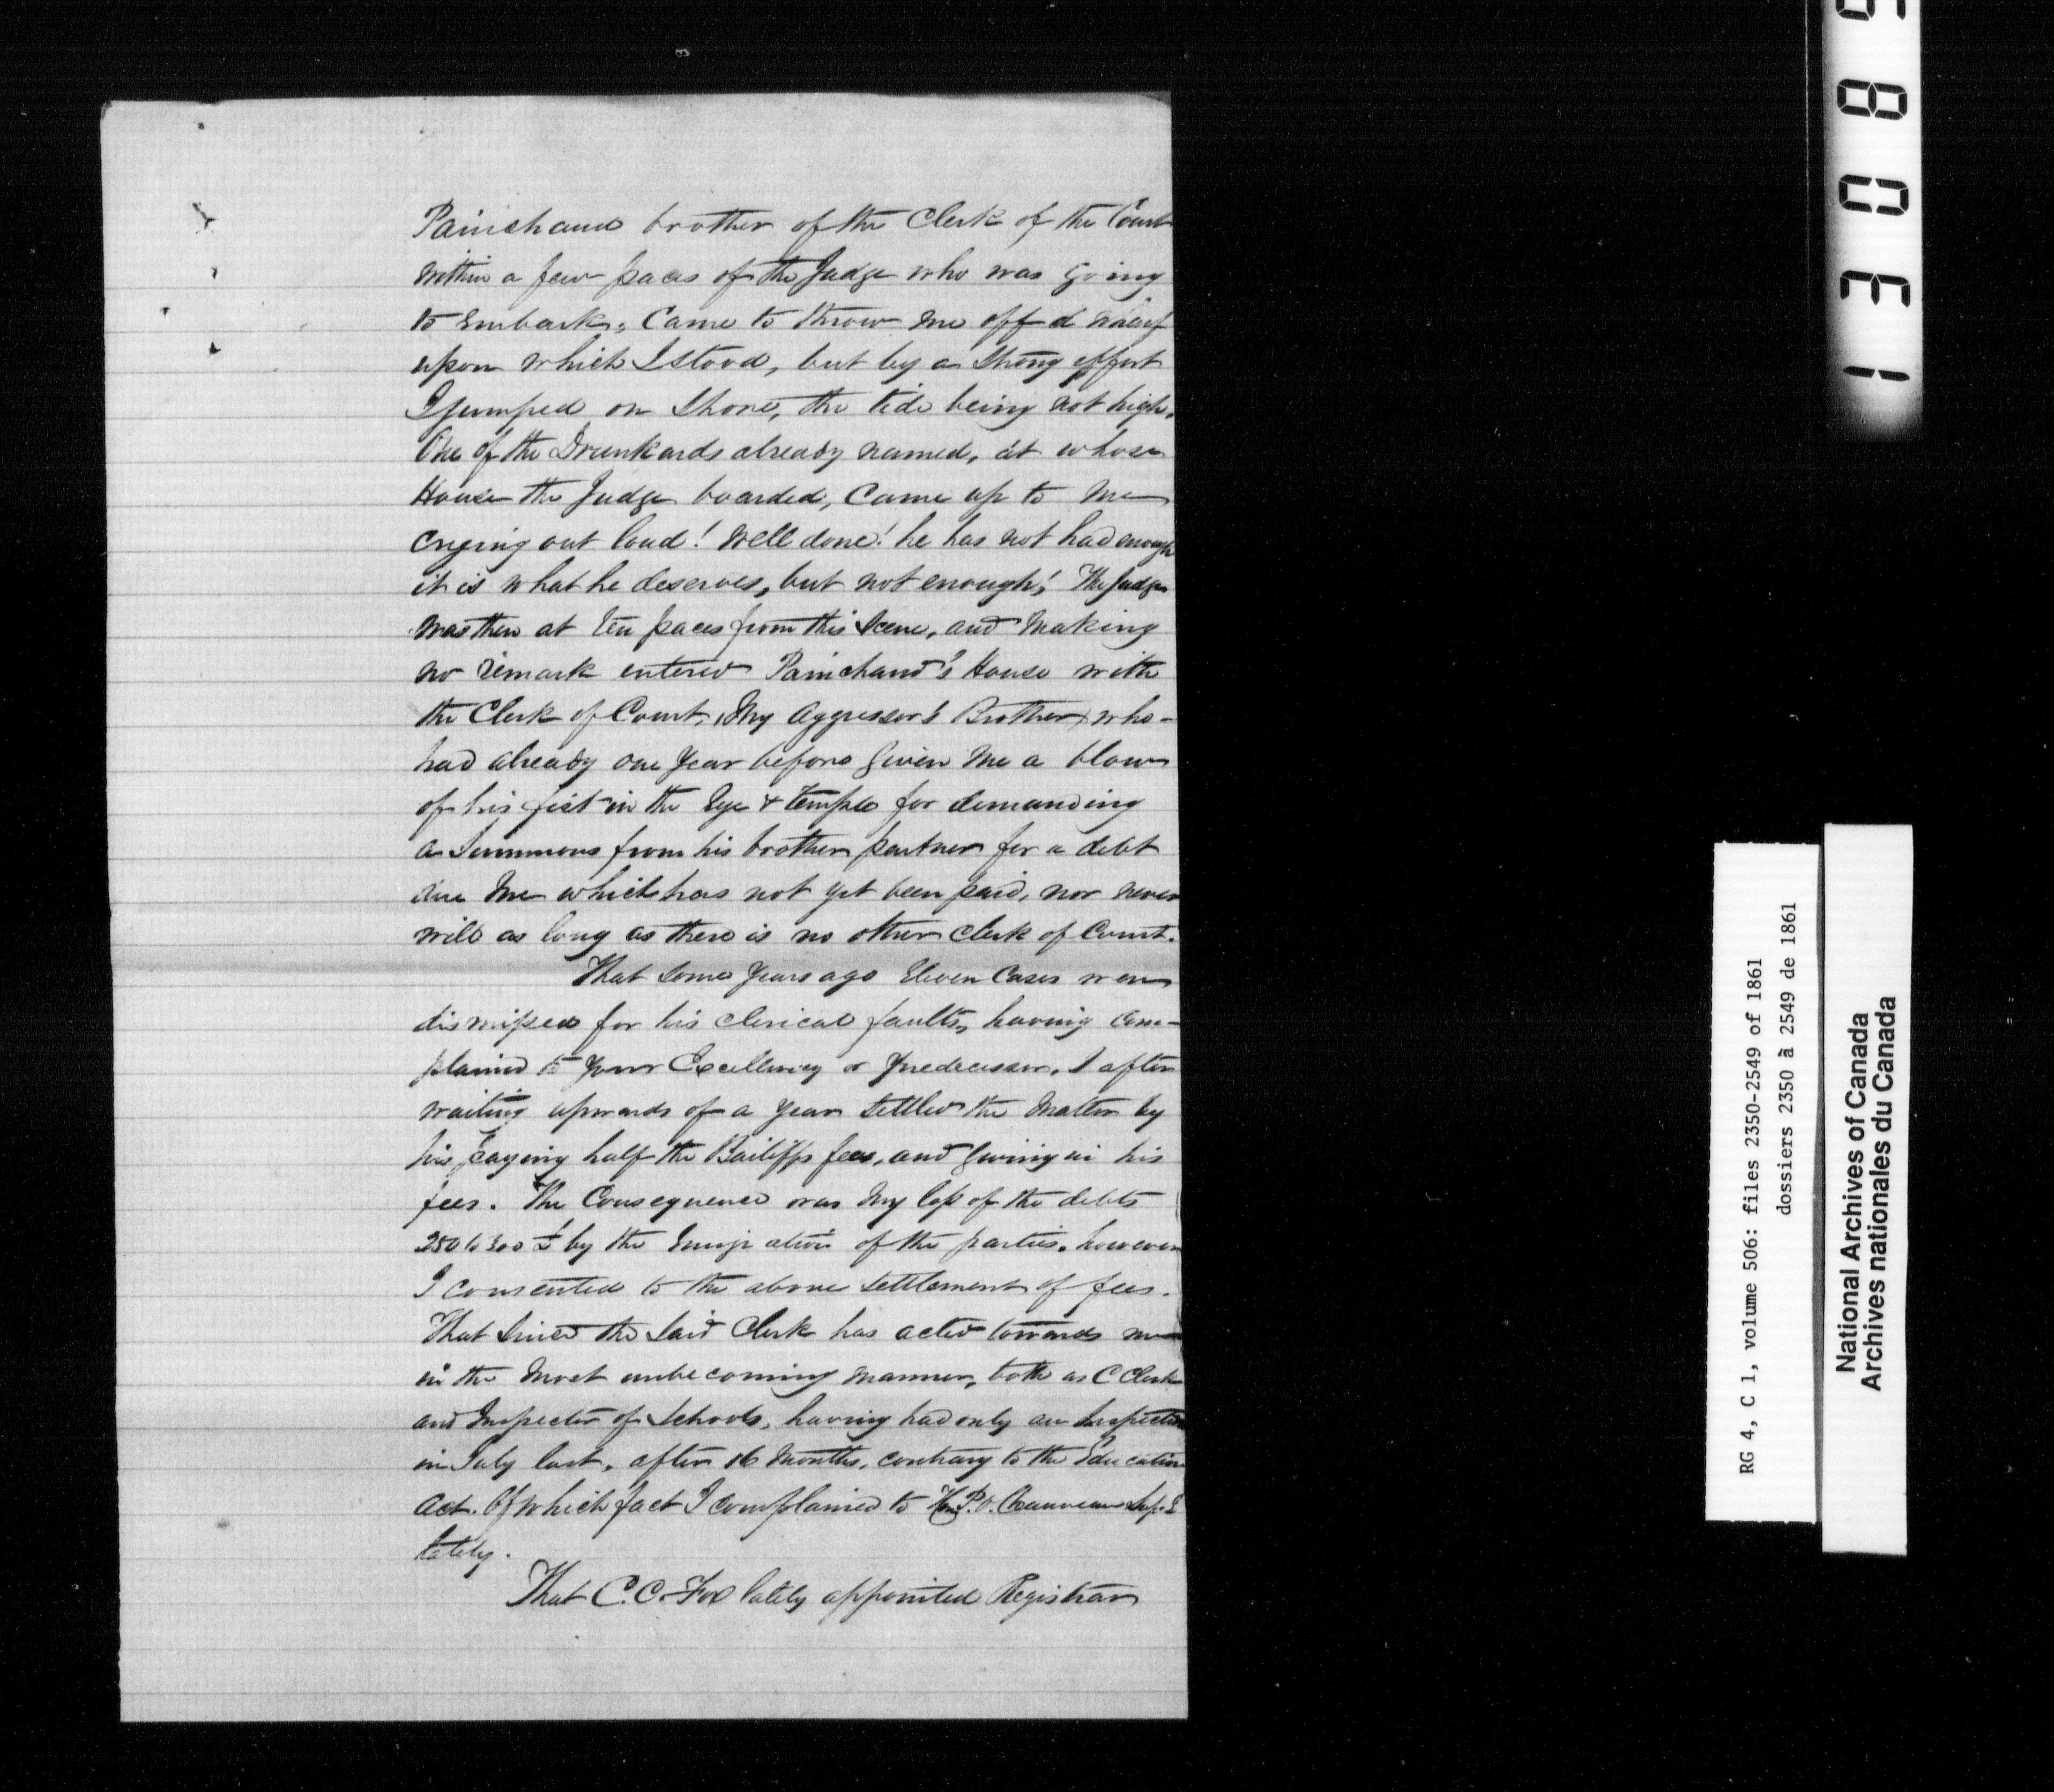 Painchaud brother of the Clerk of the Court
within a few paces of the Judge who was going
to embark, Came to throw me off a wharf
upon which I stood, but by a strong effort
I jumped on shore, the tide being not high.
One of the Drunkards already named, at whose
House the Judge boarded, Came up to me
crying out loud! Well done! he has not had enough
it is what he deserves, but not enough! The Judge
was then at ten paces from this scene, and making
no remark entered Painchaud's House with
the Clerk of Court, My Aggressor's Brother, who-
had already one year before given me a blow
of his fist in the Eye & temple for demanding
a Summons from his brother partner for a debt
due me which has not yet been paid, nor never
will as long as there is no other Clerk of Court.
That some years ago Eleven Cases were
dismissed for his clerical faults, having com-
plained to your Excellency or predecessor. I after
waiting upwards of a year settled the matter by
his paying half the Bailiffs fees, and giving in his
fees. The Consequence was my loss of the debts
250 to 300 £ by the Emigration of the parties. however
I consented to the above settlement of fees.
That since the said Clerk has acted towards me
in the most unbecoming manner, both as C Clerk
and Inspector of Schools, having had only an Inspection
in July last, after 16 months, contrary to the Education
Act. Of which fact I complained to Hon P. O. Chauveau Sup. E
lately.
That C. C. Fox lately appointed Registrar
3
RG 4, C 1, volume 506: files 2350-2549 of 1861
dossiers 2350 à 2549 de 1861
National Archives of Canada
Archives nationales du Canada